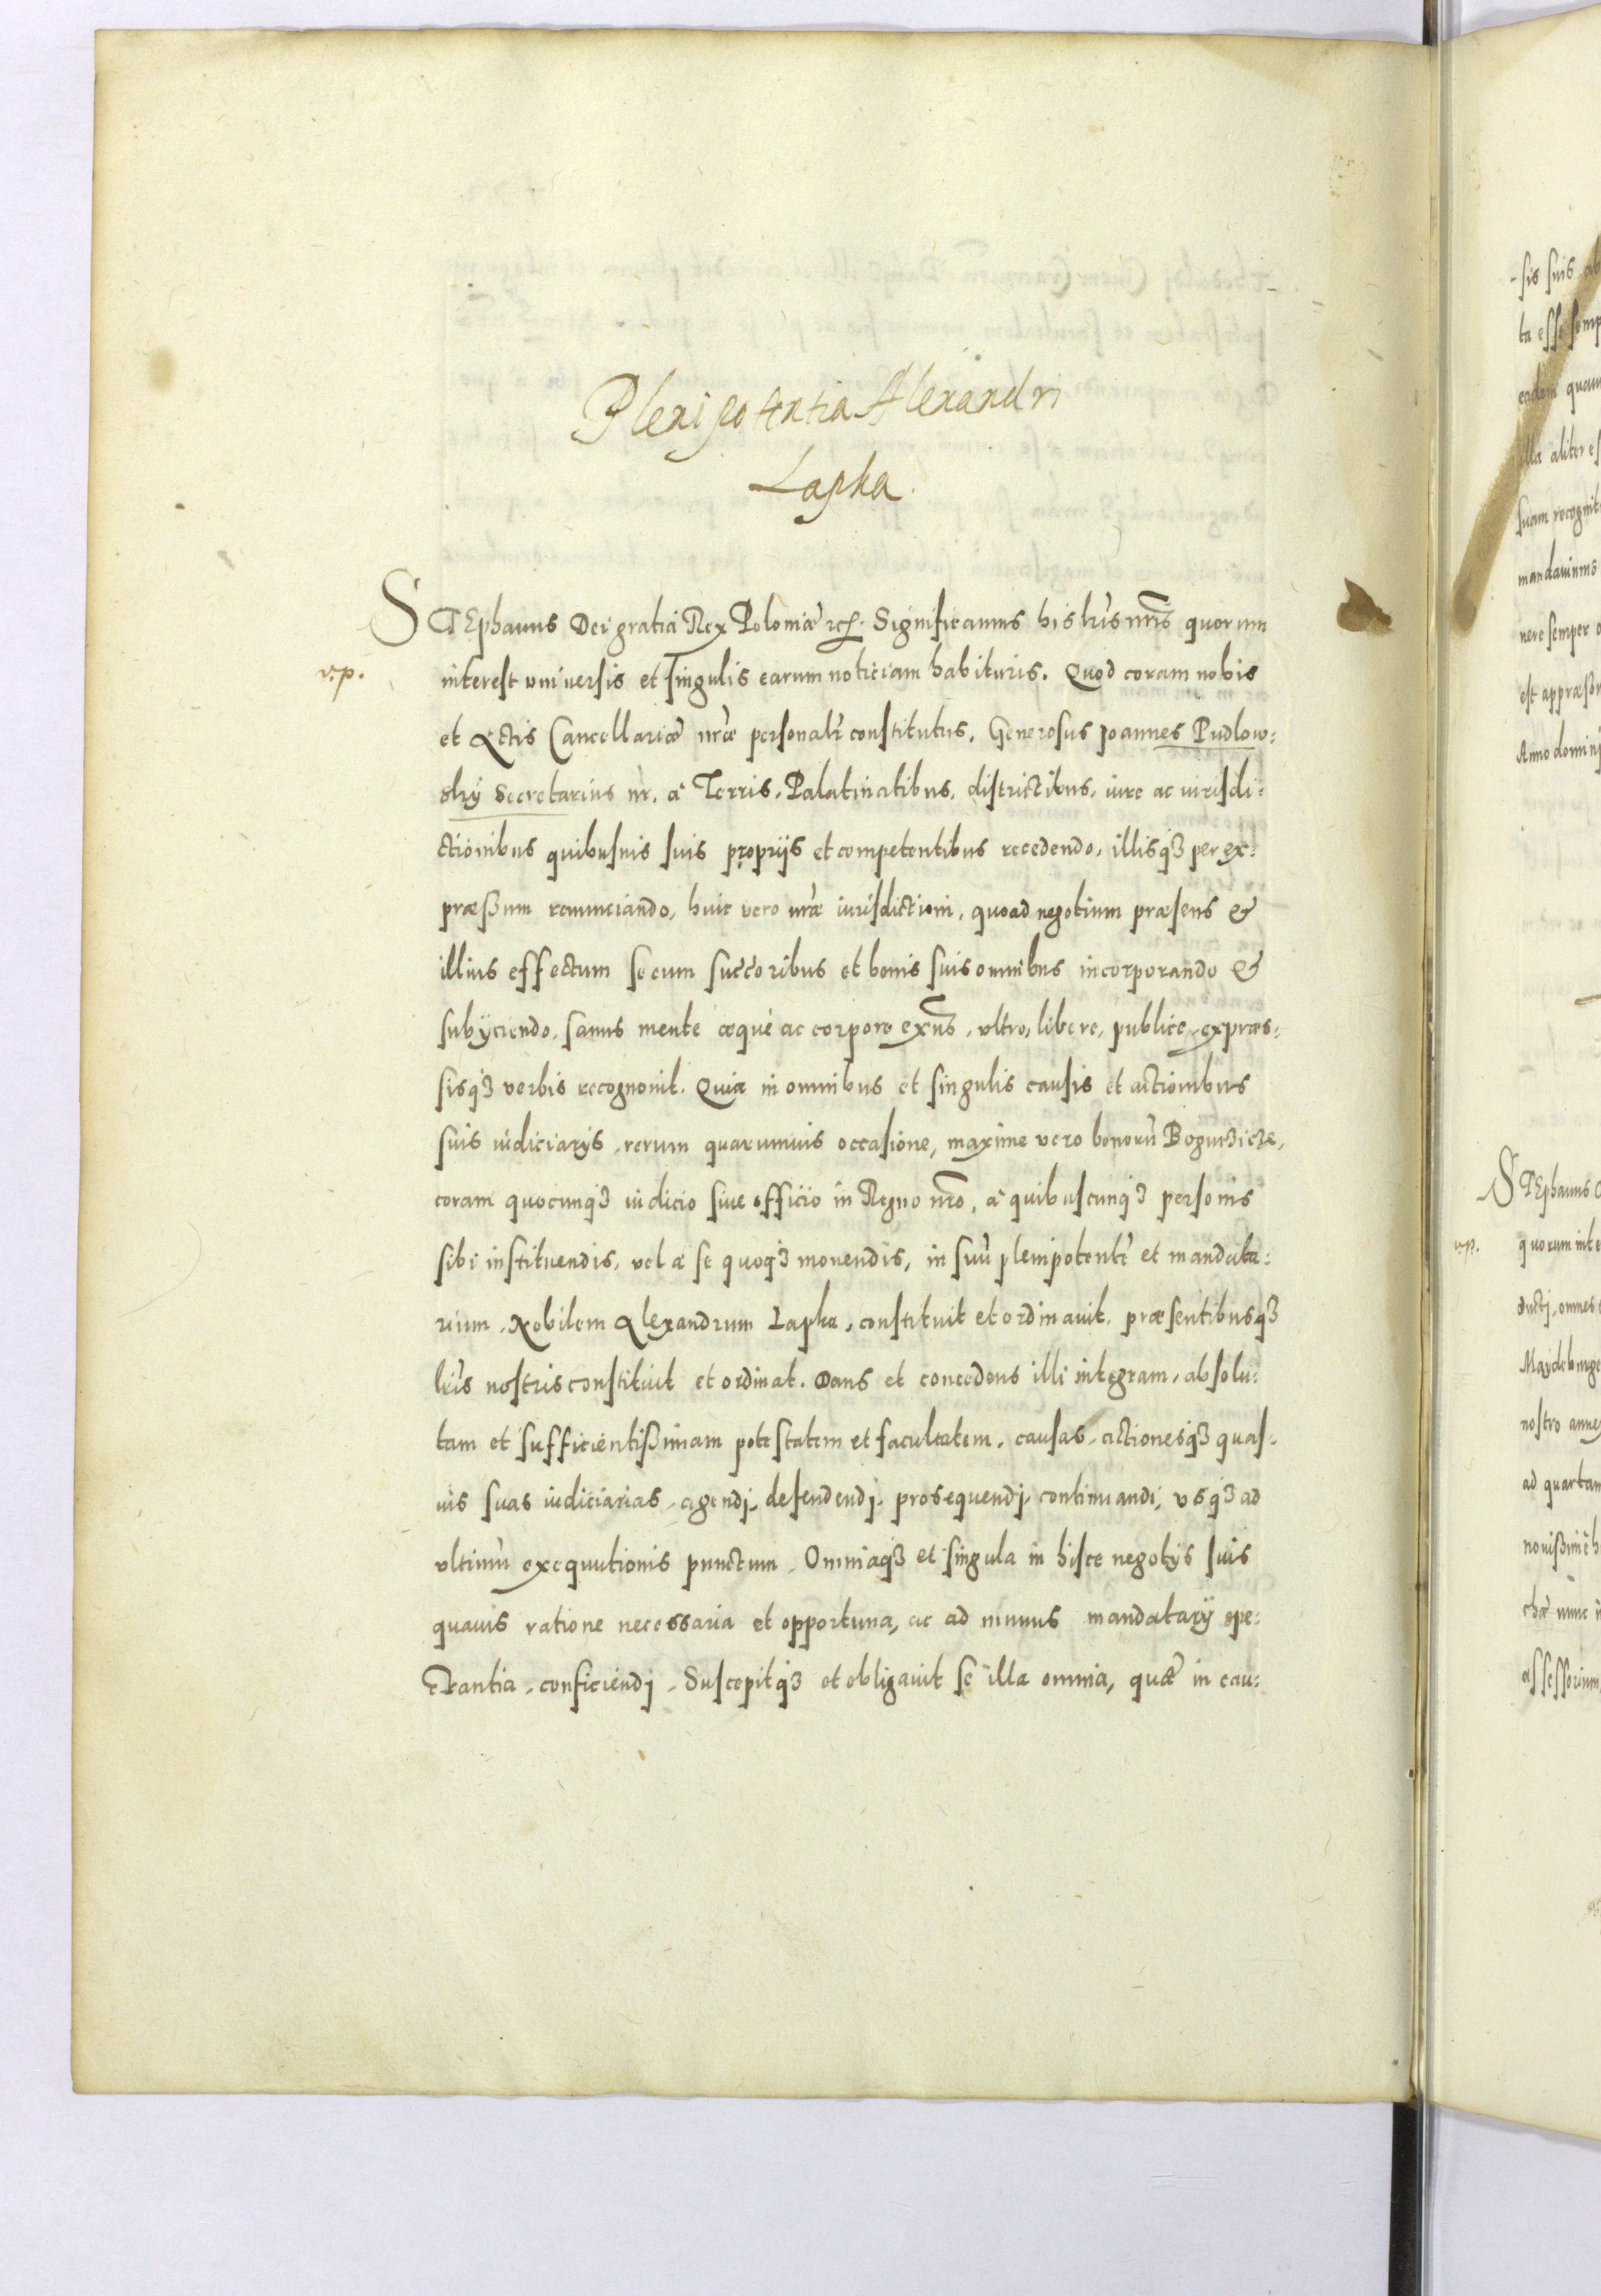 Plenipotentia Alexandri
Lapka.
STEphanus Dei gratia Rex Poloniæ etc. Significamus his lr̃is nr̃is quorum
v.p.
interest vniuersis et singulis earum noticiam habituris. Quod coram nobis
et Actis Cancellariæ nr̃æ personalr̃ constitutus, Generosus Joannes Pudlow:
sky Secretarius nr̃, à Terris, Palatinatibus, districtibus, iure ac iurisdi:
ctionibus quibusuis suis proprijs et competentibus recedendo, illisq3 per ex:
præßum renunciando, huic vero nr̃æ iurisdictioni, quoad negotium præsens &
illius effectum se cum succoribus et bonis suis omnibus incorporando &
subijciendo, sanus mente æquè ac corpore exn̄s, vltro, libere, publice, expræs:
sisq3 verbis recognouit. Quia in omnibus et singulis causis et actionibus
suis iudiciarijs, rerum quarumuis occasione, maxime vero bonorũ Bogurzicze,
coram quocunq3 iudicio siue officio in Regno nr̃o, à quibuscunq3 personis
sibi instituendis, vel a se quoq3 mouendis, in suũ plenipotentẽ et mandata:
rium, Nobilem Alexandrum Lapka, constituit et ordinauit, præsentibusq3
lr̃is nostris constituit et ordinat. Dans et concedens illi integram, absolu:
tam et sufficientißimam potestatem et facultatem, causas, actionesq3 quas:
uis suas iudiciarias, agendj, defendendj, prosequendj, continuandi, vsq3 ad
vltimũ exequutionis punctum, Omniaq3 et singula in hisce negotijs suis
quauis ratione necessaria et opportuna, ac ad munus mandatarij spe:
ctantia, conficiendj, Suscepitq3 et obligauit se illa omnia, quæ in cau:
-sis suis
ta esse
eadem
illa aliter
suam
mandauimus
nere semper
est
Anno dominj
STEphanus
v.p.
quorum
ductj, omnes
nostro
ad quartam